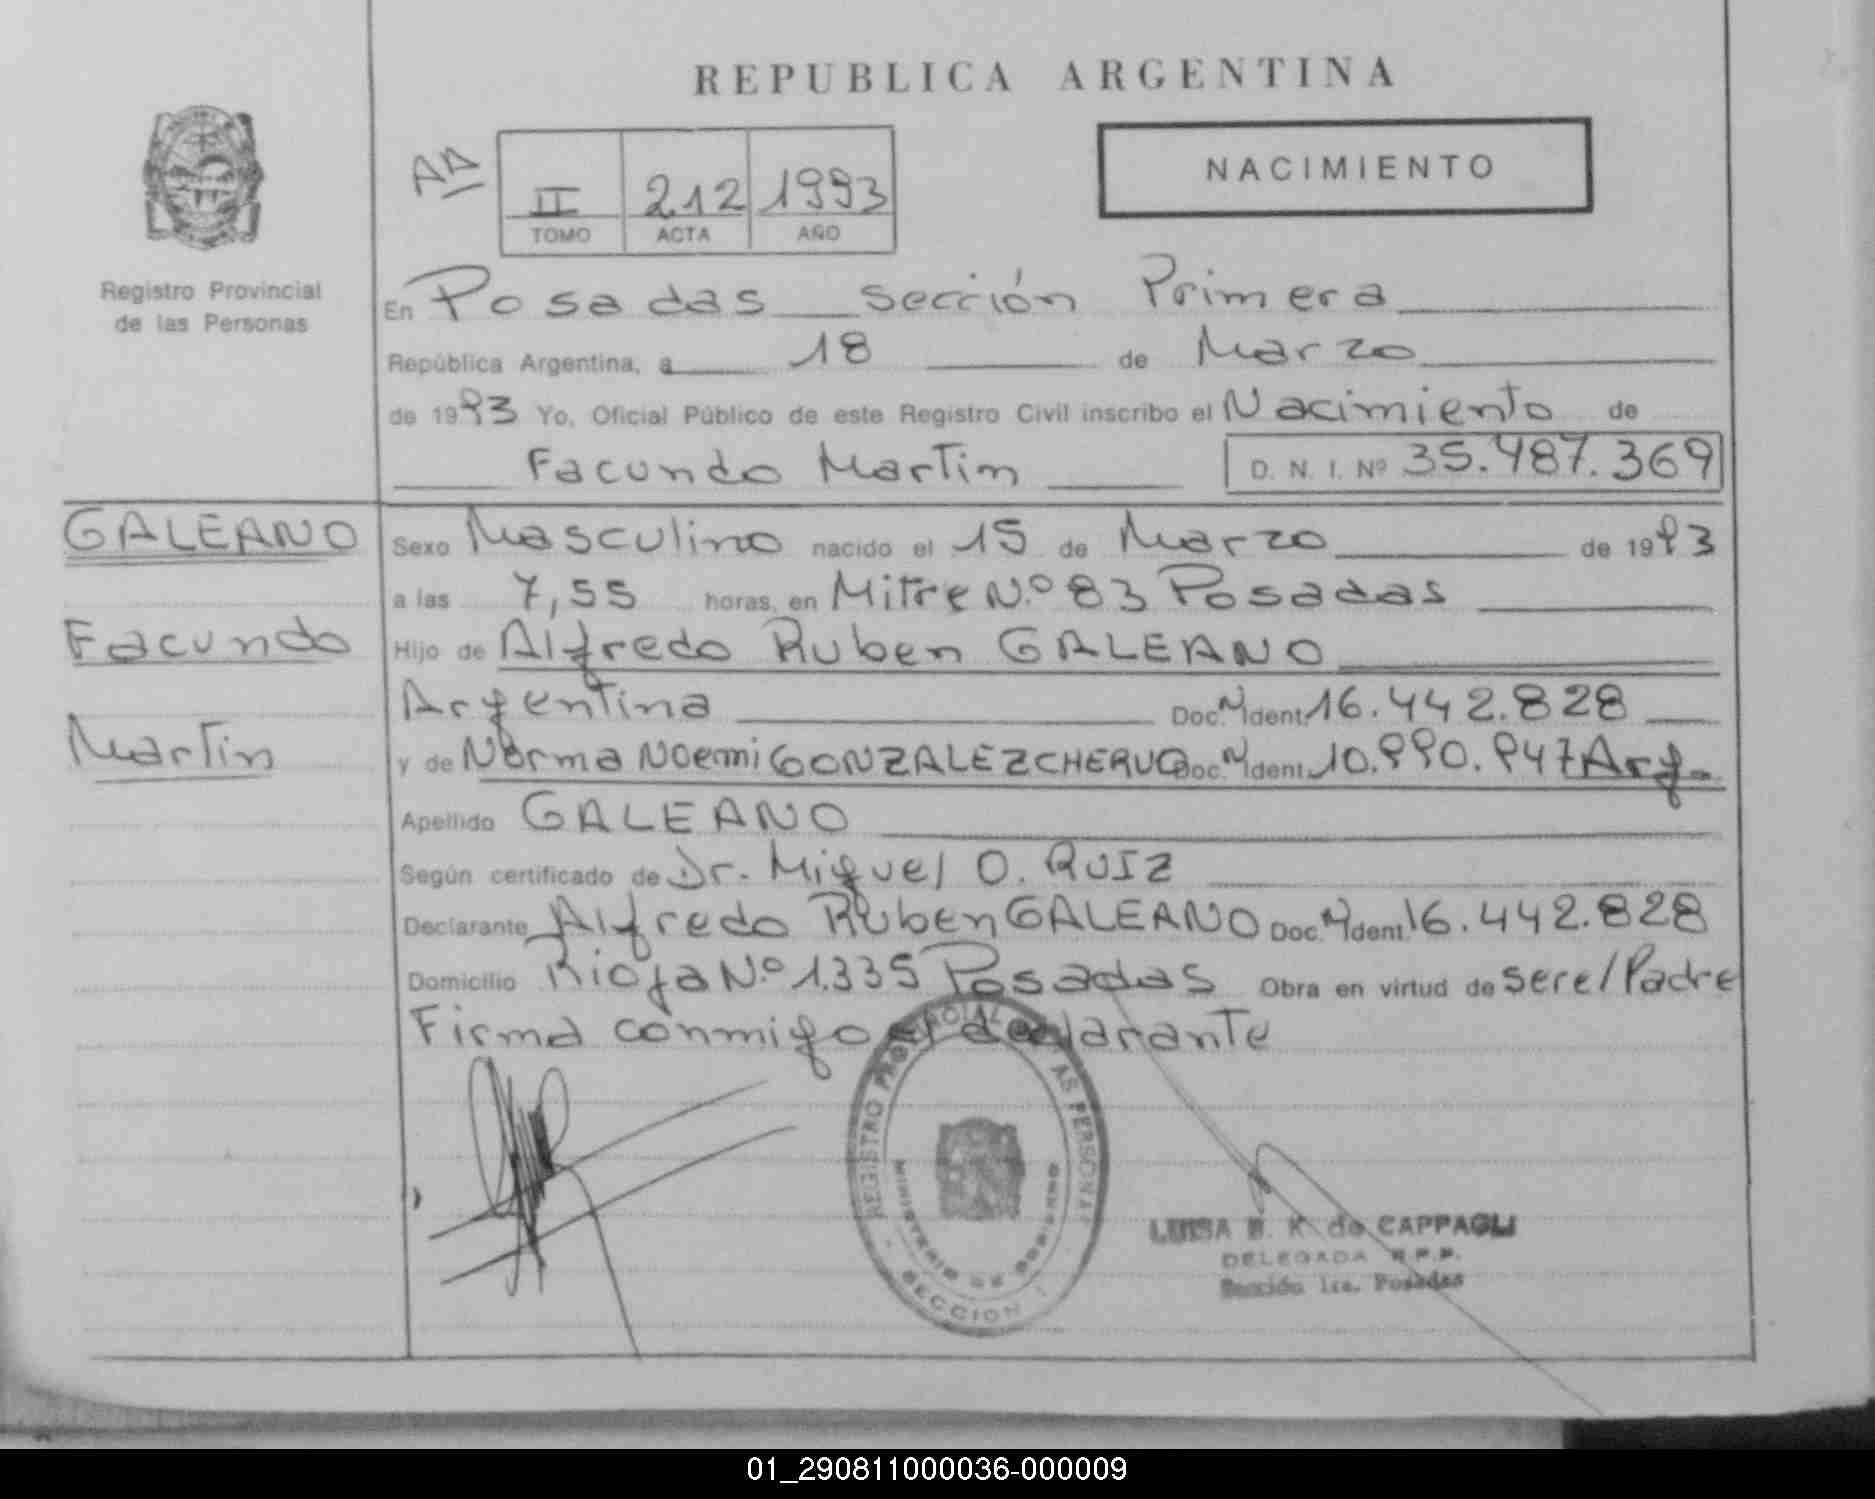 REPUBLICA ARGENTINA
AD
II 212 1993
TOMO ACTA AÑO
NACIMIENTO
Registro Provincial
de las Personas
En Posadas sección Primera
República Argentina, a 18 de Marzo
de 1993 Yo, Oficial Público de este Registro Civil inscribo el Nacimiento de
Facundo Martin D. N. I. Nº 35.487.369
GALEANO
Facundo
Martin
Sexo Masculino nacido el 15 de Marzo de 1993
a las 7,55 horas, en Mitre N.º 83 Posadas
Hijo de Alfredo Ruben GALEANO
Argentina Doc. Ident. 16.442.828
y de Norma Noemi GONZALEZ CHERUQ Doc. Ident. 10.990.947 Arg.
Apellido GALEANO
Según certificado de Dr. Miguel O. RUIZ
Declarante Alfredo Ruben GALEANO Doc. Ident. 16.442.828
Domicilio Rioja N.º 1.335 Posadas Obra en virtud de ser el Padre
Firma conmigo el declarante
REGISTRO PROVINCIAL AS PERSONAS
MINISTERIO DE GOBIERNO
SECCION 1
LUISA B. K. de CAPPAGLI
DELEGADA R.P.P.
Sección 1ra. Posadas
01_290811000036-000009